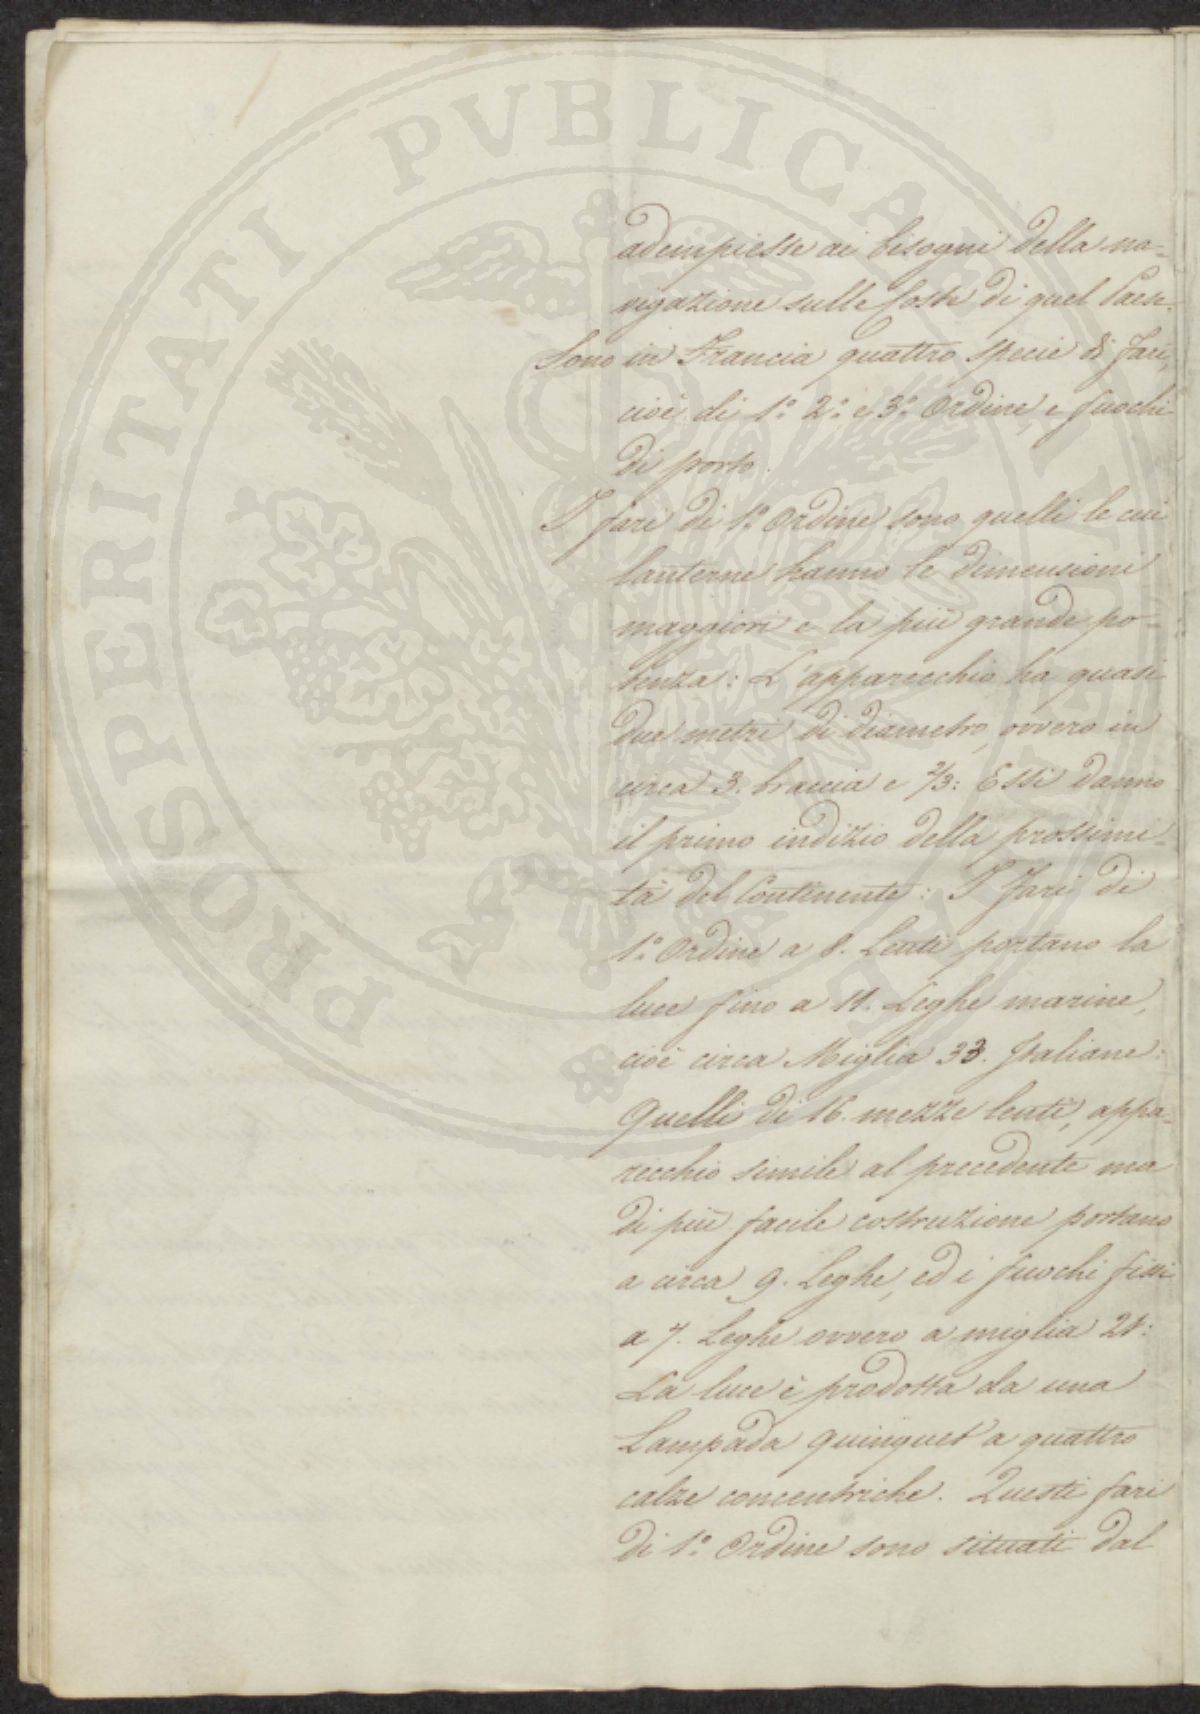 adempiesse ai bisogni della na=
vigazione sulle Coste di quel Paese.
Sono in Francia quattro specie di Fari,
cioè di 1.° 2.° e 3.° Ordine, e fuochi
di porto.
I fari di 1.° Ordine sono quelli le cui
lanterne hanno le dimensioni
maggiori e la più grande po=
tenza: L'apparecchio ha quasi
due metri di diametro, ovvero in
circa 3. braccia e 2/3: Essi danno
il primo indizio della prossimi=
tà del Continente: I Fari di
1.° Ordine a 8. Lenti portano la
luce fino a 11. Leghe marine,
cioè circa Miglia 33. Italiane:
Quelli di 16. mezze lenti, appa=
recchio simile al precedente ma
di più facile costruzione portano
a circa 9. Leghe, ed i fuochi fissi
a 7. Leghe ovvero a miglia 21:
La luce è prodotta da una
Lampada Quinquet a quattro
calze concentriche. Questi fari
di 1.° Ordine sono situati dal
PROSPERITATI PVBLICAE